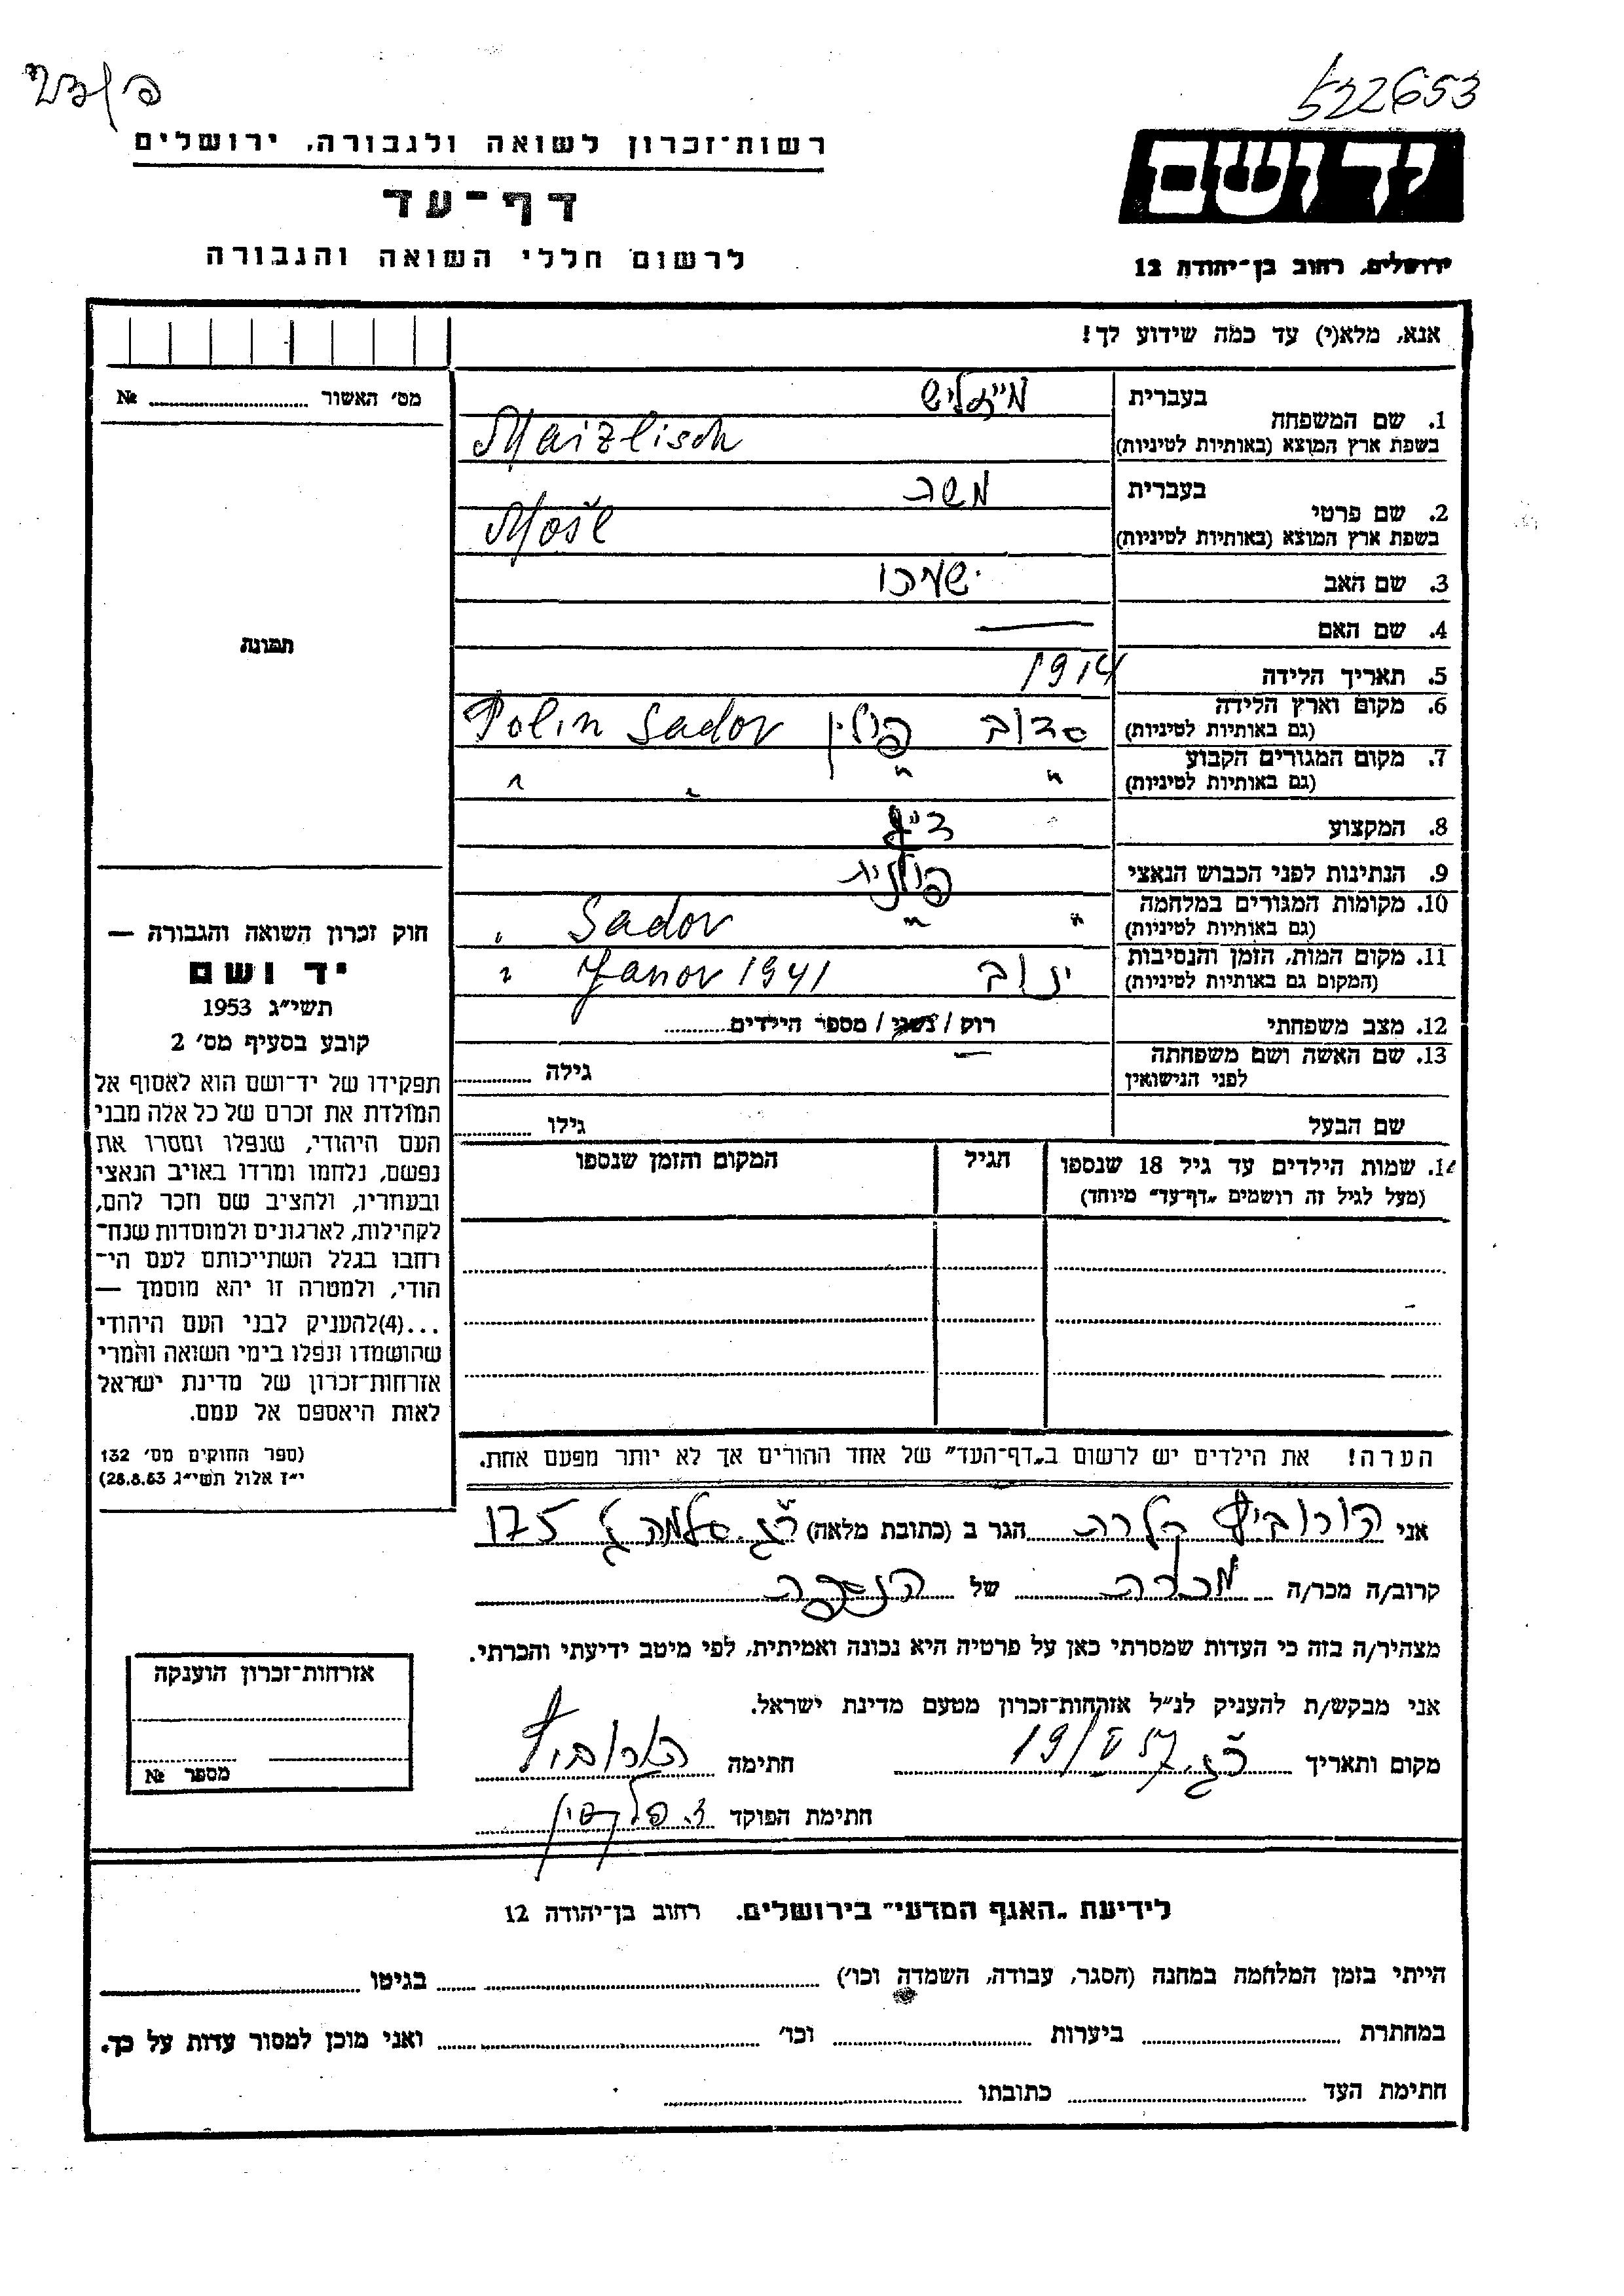 522653
יד ושם
ירושלים, רחוב בן־יהודה 12
רשות־זכרון לשואה ולגבורה, ירושלים
דף־עד
לרשום חללי השואה והגבורה
אנא, מלא(י) עד כמה שידוע לך!
מס׳ האשור № 
1. שם המשפחה בעברית מייזליש
בשפת ארץ המוצא (באותיות לטיניות) Maizlisch
2. שם פרטי בעברית משה
בשפת ארץ המוצא (באותיות לטיניות) Moše
3. שם האב שמחו
4. שם האם —
5. תאריך הלידה 1914
6. מקום וארץ הלידה סדוב פולין Sadov Polin
(גם באותיות לטיניות)
7. מקום המגורים הקבוע " " " "
(גם באותיות לטיניות)
8. המקצוע
9. הנתינות לפני הכבוש הנאצי פולנית
10. מקומות המגורים במלחמה " " Sadov "
(גם באותיות לטיניות)
11. מקום המות, הזמן והנסיבות ינוב Janov 1941 "
(המקום גם באותיות לטיניות)
12. מצב משפחתי רוק / נשוי / מספר הילדים
13. שם האשה ושם משפחתה — גילה
לפני הנישואין
שם הבעל גילו
14. שמות הילדים עד גיל 18 שנספו הגיל המקום והזמן שנספו
(מעל לגיל זה רושמים „דף־עד״ מיוחד)
הערה! את הילדים יש לרשום ב„דף־העד״ של אחד ההורים אך לא יותר מפעם אחת.
תמונה
חוק זכרון השואה והגבורה —
יד ושם
תשי״ג 1953
קובע בסעיף מס׳ 2
תפקידו של יד־ושם הוא לאסוף אל
המולדת את זכרם של כל אלה מבני
העם היהודי, שנפלו ומסרו את
נפשם, נלחמו ומרדו באויב הנאצי
ובעוזריו, ולהציב שם וזכר להם,
לקהילות, לארגונים ולמוסדות שנח־
רבו בגלל השתייכותם לעם הי־
הודי, ולמטרה זו יהא מוסמך —
...(4)להעניק לבני העם היהודי
שהושמדו ונפלו בימי השואה והמרי
אזרחות־זכרון של מדינת ישראל
לאות היאספם אל עמם.
(ספר החוקים מס׳ 132
י״ז אלול תשי״ג 28.8.53)
אני הורוביץ קלרה הגר ב (כתובת מלאה) 175
קרוב/ה מכר/ה מכרה של הנספה
מצהיר/ה בזה כי העדות שמסרתי כאן על פרטיה היא נכונה ואמיתית, לפי מיטב ידיעתי והכרתי.
אני מבקש/ת להעניק לנ״ל אזרחות־זכרון מטעם מדינת ישראל.
מקום ותאריך 19/ 57 חתימה הורוביץ
חתימת הפוקד
אזרחות־זכרון הוענקה
מספר №
לידיעת „האגף המדעי״ בירושלים. רחוב בן־יהודה 12
הייתי בזמן המלחמה במחנה (הסגר, עבודה, השמדה וכו׳) בגיטו
במחתרת ביערות וכו׳ ואני מוכן למסור עדות על כך.
חתימת העד כתובתו